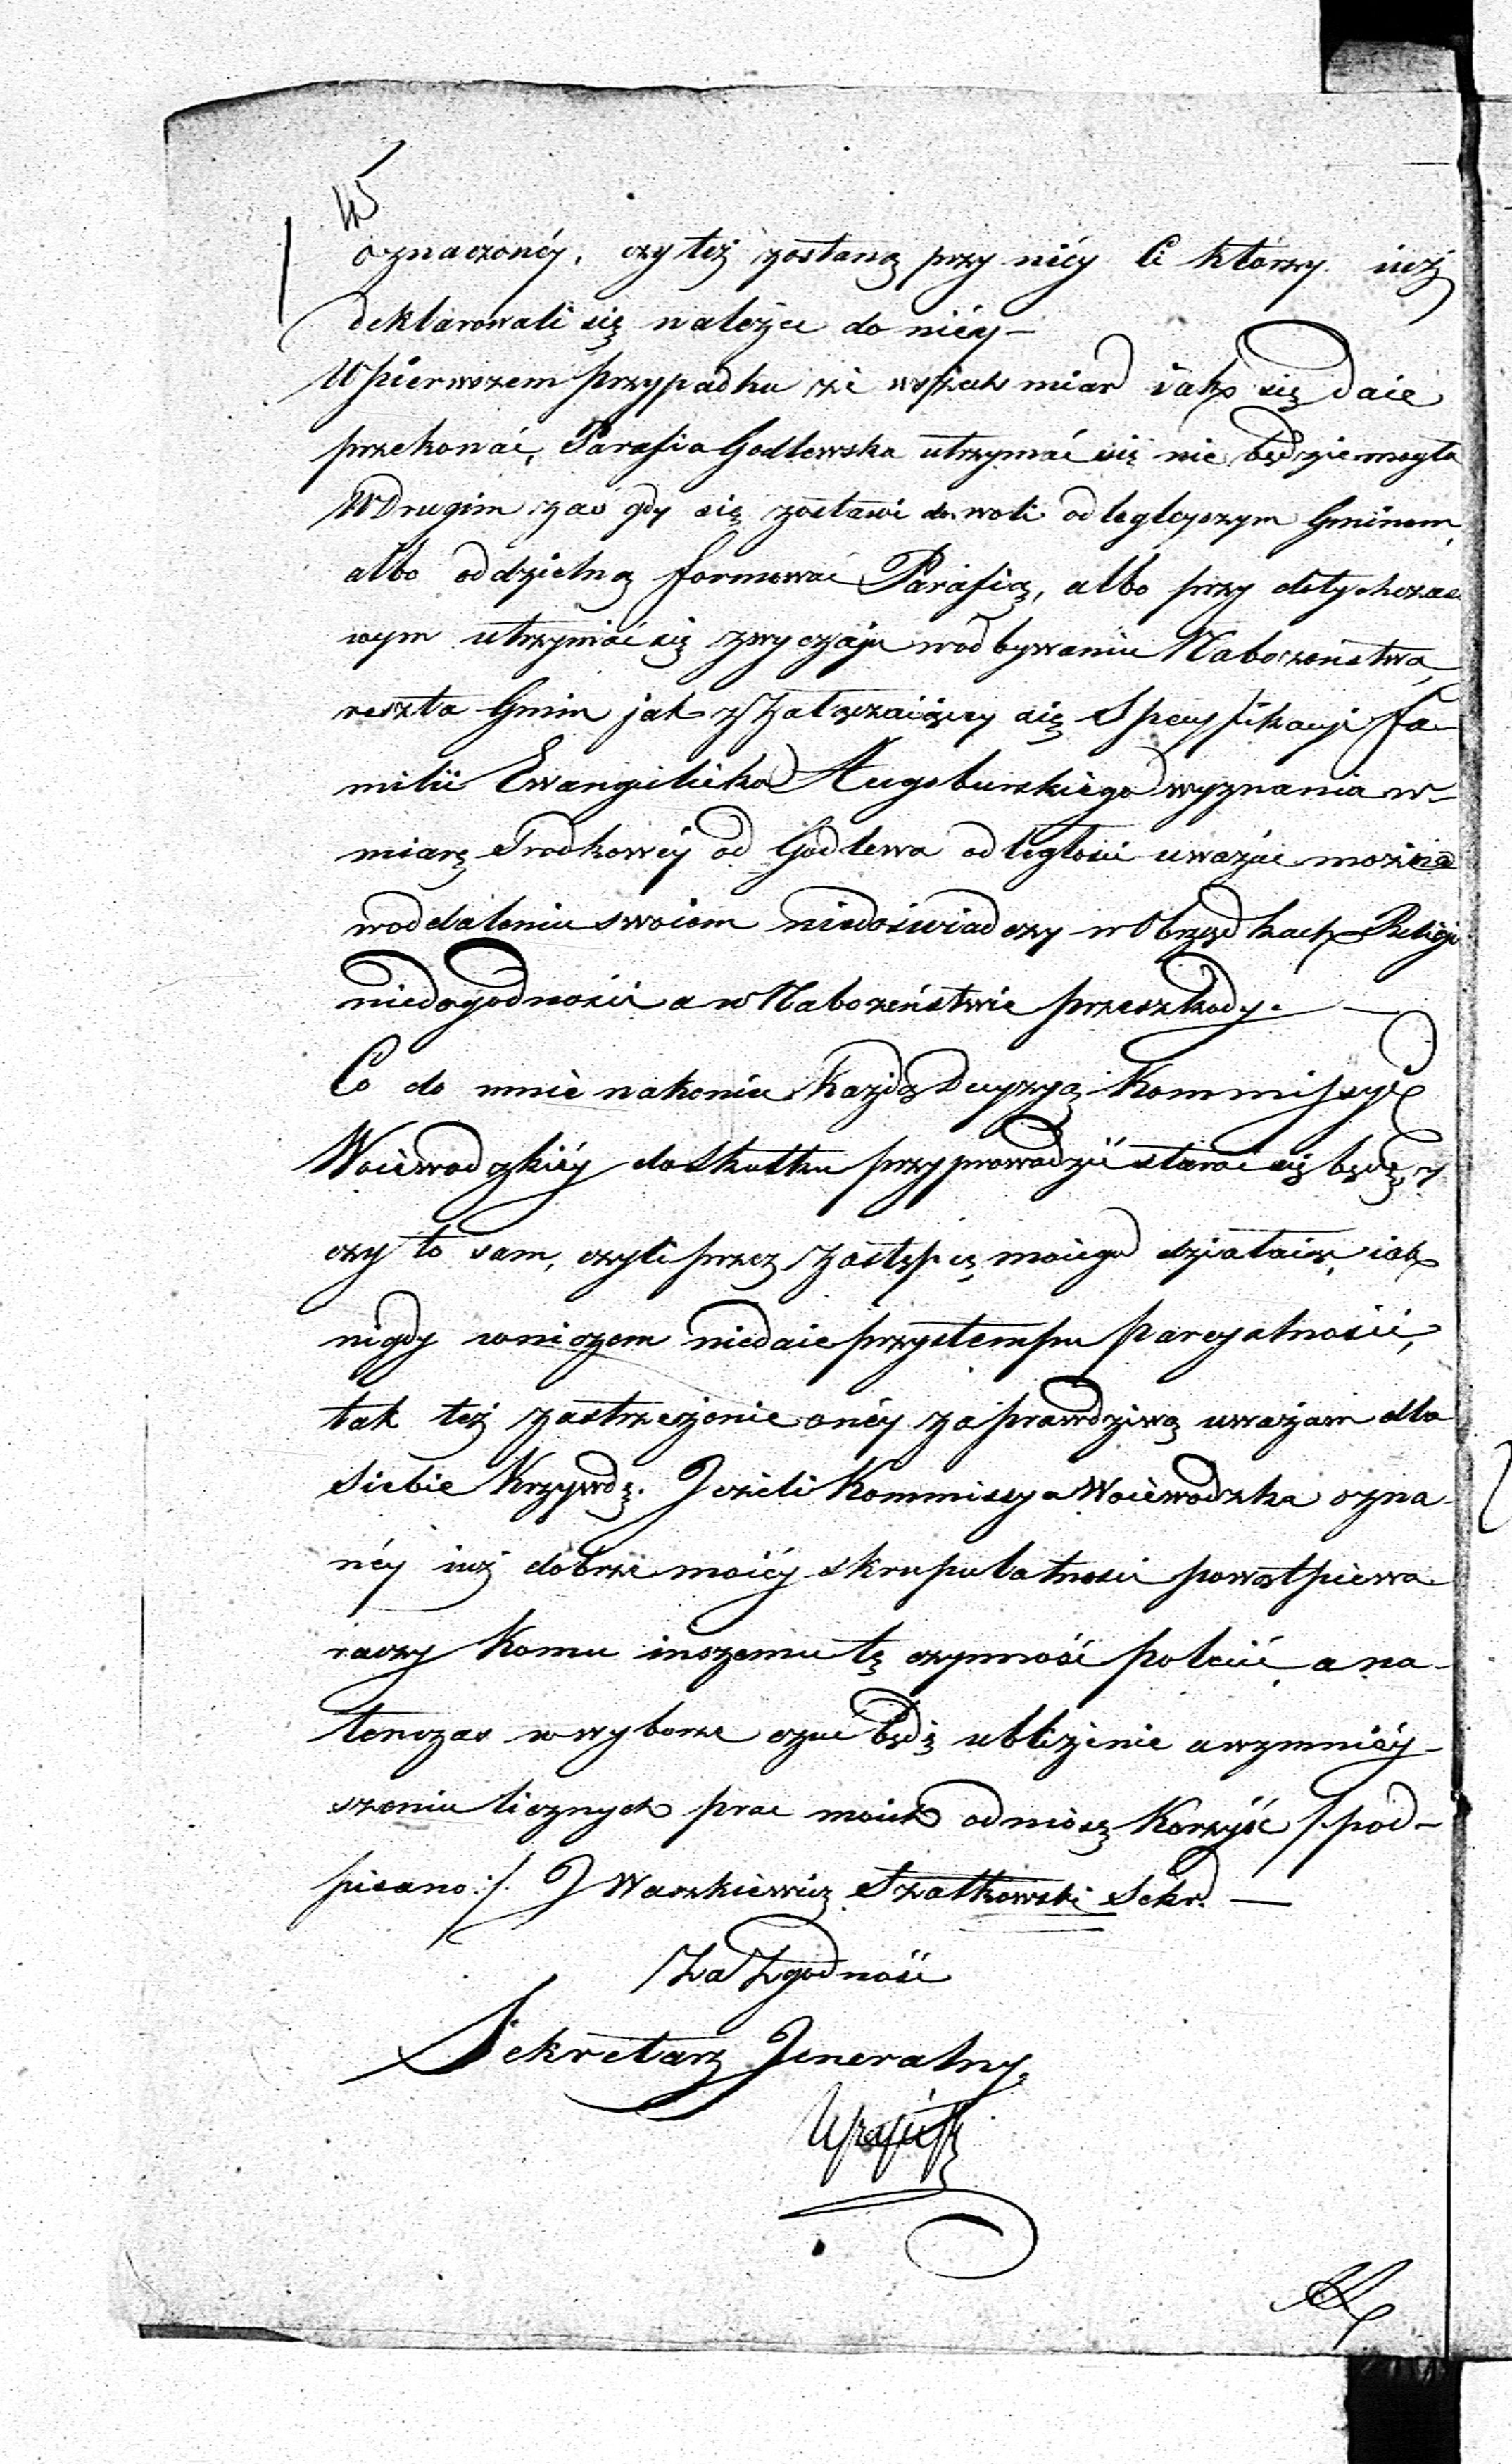 oznaczonéy, czy też zostaną przy niéy Ci którzy iuż
deklarowali się należeć do niéy –
W pierwszem przypadku ze wszech miar iako się daie
przekonać, Parafia Godlewska utrzymać się nie będzie mogła
W Drugim zaś gdy się zostawi do woli odlegleyszym Gminom,
albo oddzielną formować Parafią, albo przy dotychczaso
wym utrzymać się zwyczaju w odbywaniu Nabożeństwa,
reszta Gmin jak z załączaiącey się Specyfikacyi fa-
milii Ewangelicko Augsburskiego wyznania w-
miarę Srodkowéy od Godlewa odległości uważać można
w oddaleniu swoiem niedoświadczy w Obrządkach Religii
niedogodności a w Nabożeństwie przeszkody. —
Co do mnie nakoniec Każdą Decyzyą Kommissyi
Woiewodzkiéy do skutku przyprowadzić starać się będę, y
czy to sam, czyli przez Zastępcę moiego działaiąc, iak
nigdy w niczem niedaie przystempu parcyalności,
tak też zastrzeżenie onéy za prawdziwą uważam dla
siebie Krzywdę. Jeżeli Kommissya Woiewodzka ozna-
néy iuż dobrze moiéy skrupulatności powątpiewa
raczy Komu inszemu tę czynność polecić, a na-
tenczas w wyborze czuć będę ubliżenie a w zmniéy-
szeniu licznych prac moich odniosę Korzyść /: pod-
pisano :/ J Waszkiewicz Szatkowski Sekr. —
Za Zgodność
Sekretarz Jeneralny